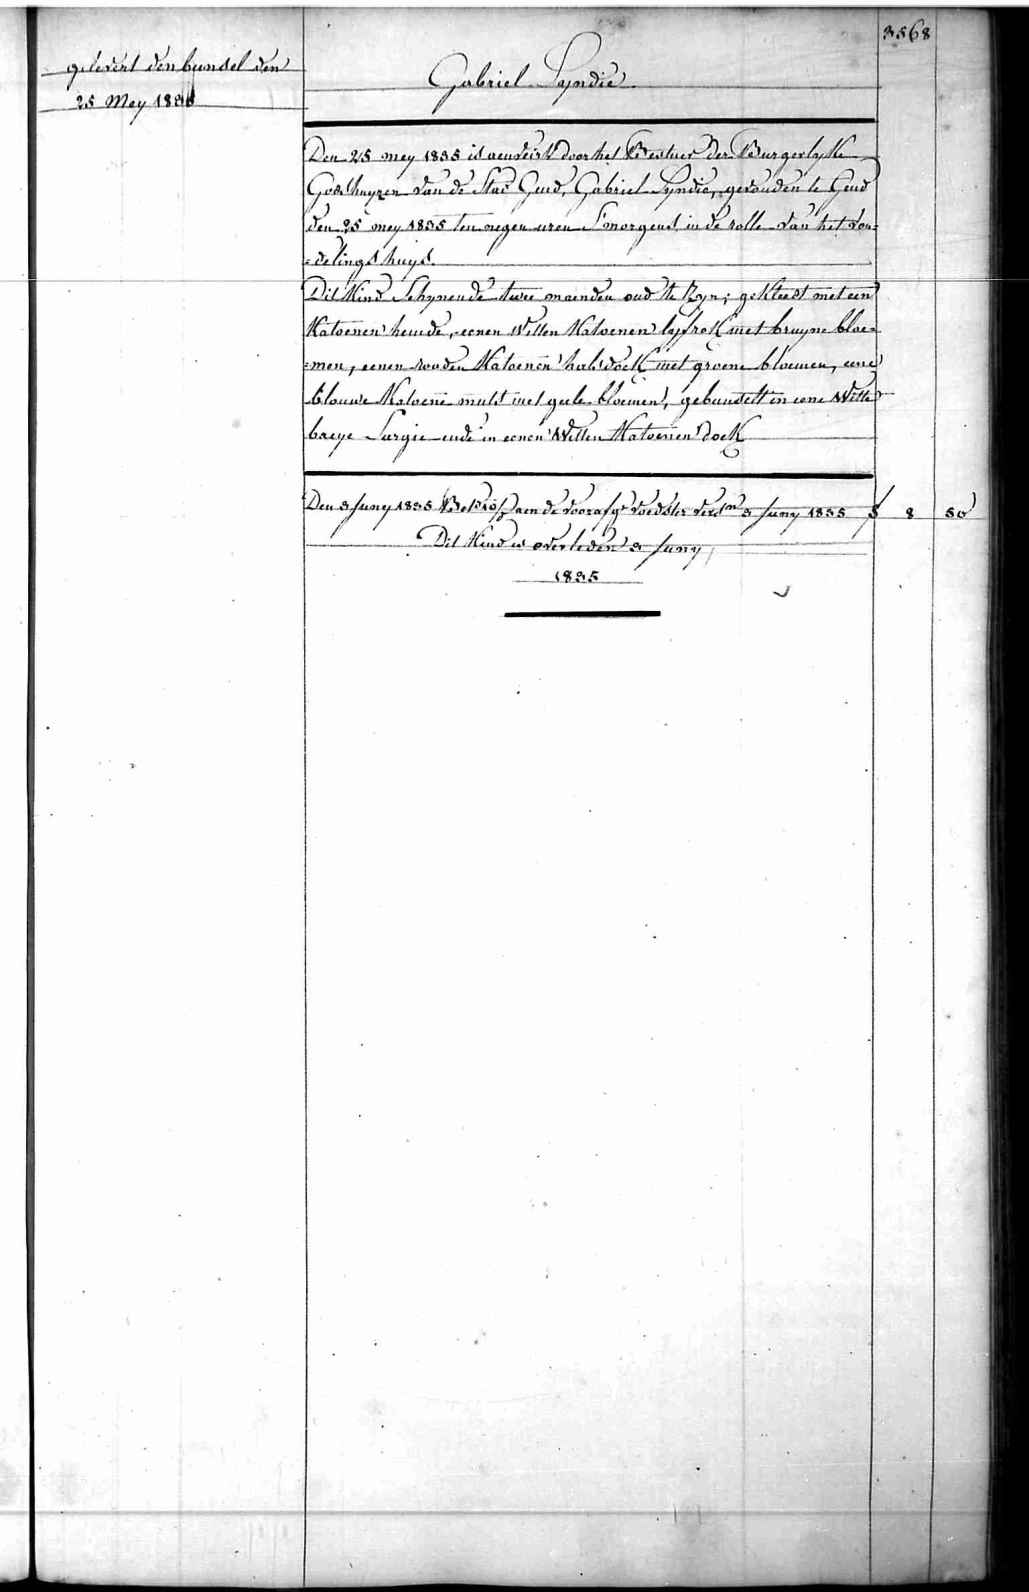 3568
gelevert den bundel den
25 Mey 1835
Gabriel Syndic
Den 25 mey 1835 is aenveirt door het Bestuer der Burgerlyke
Godshuyzen van de Stad Gend, Gabriel Syndic, gevonden te Gend
den 25 mey 1835 ten negen uren S'morgens in de rolle van het von=
=delingshuys.
Dit Kind Schynende twee maenden oud te Zyn; gekleedt met een
Katoenen hemde, eenen Witten Katoenen lyfrok met bruyne bloe=
=men, eenen rooden Katoenen halsdoek met groene bloemen, eene
blauwe Katoene muts met geele bloemen, gebundelt in eene Witte
baeye Sargie ende in eenen Witten Katoenen doek
Den 3 Juny 1835 aen de voorafge voedster 3 Juny 1835 8 50
Dit Kind is overleden 3 Juny
1835